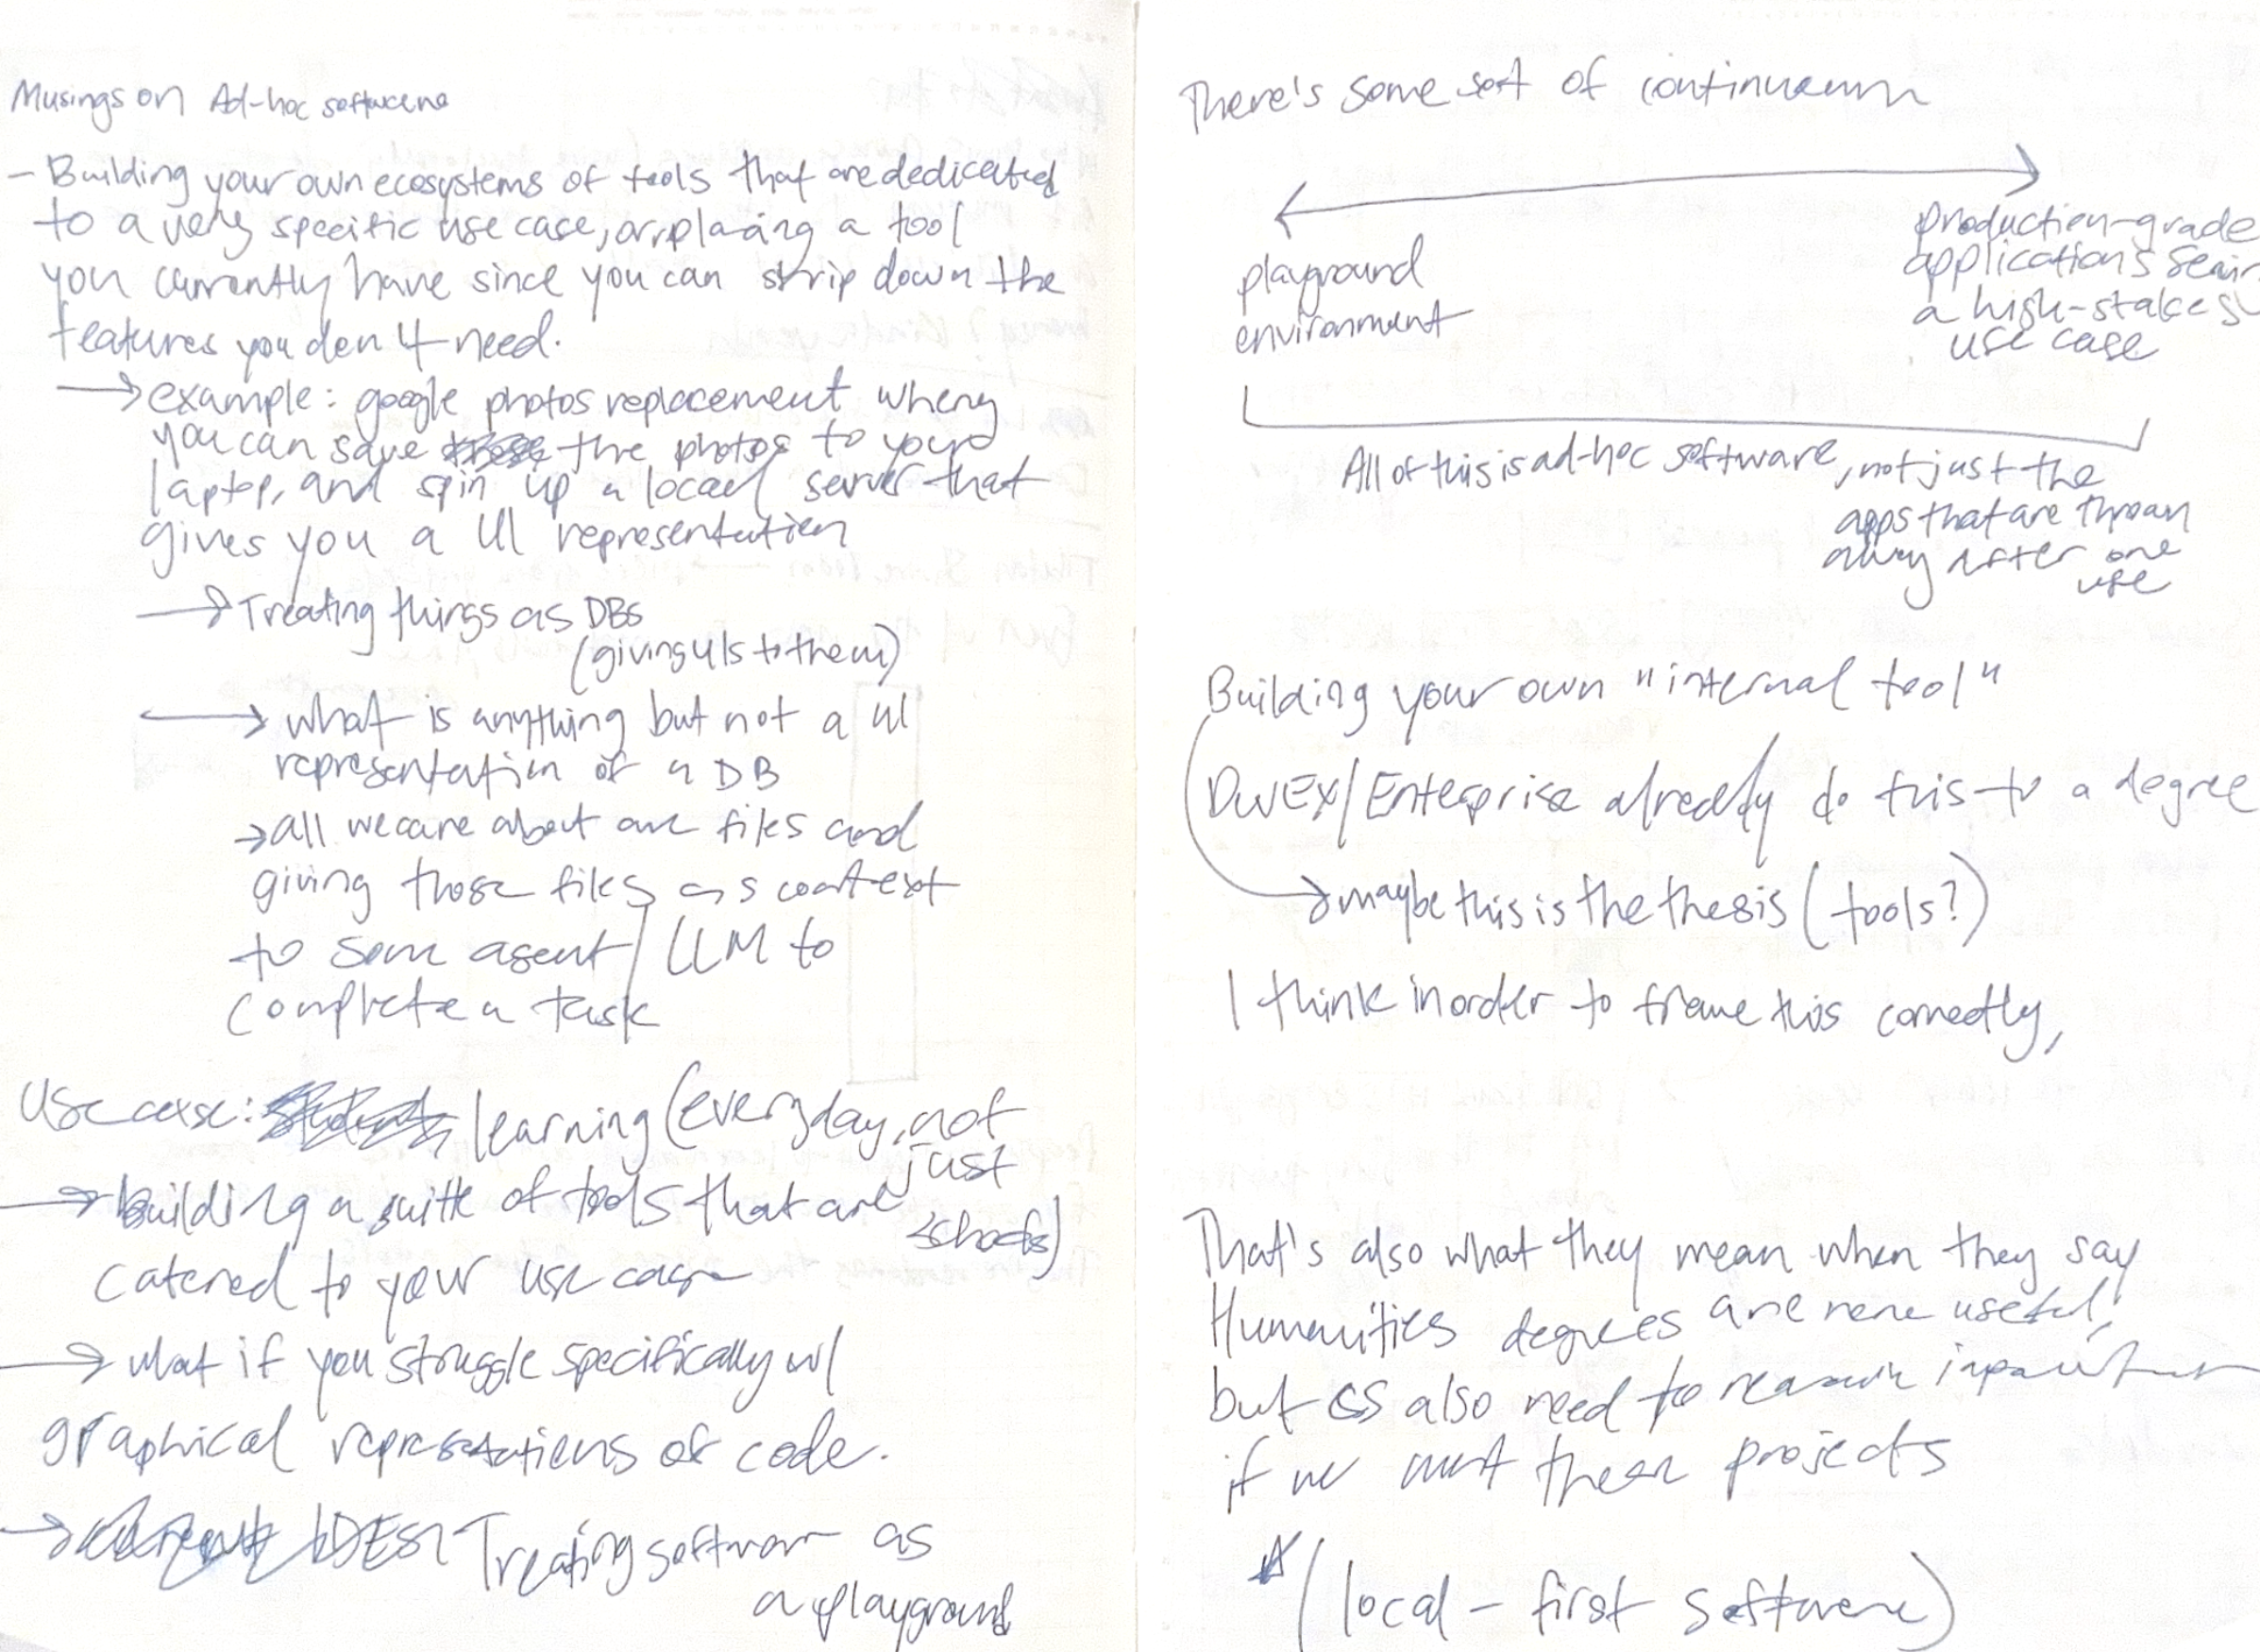 Musings on Ad-hoc software
- Building your own ecosystems of tools that are dedicated
to a very specific use case, or replacing a tool
you currently have since you can strip down the
features you don't need.
→ example: google photos replacement where
you can save the photos to your
laptop, and spin up a local server that
gives you a UI representation
→ Treating things as DBs
(giving UIs to them)
→ what is anything but not a UI
representation of a DB
→ all we care about are files and
giving those files as context
to some agent/LLM to
complete a task
Use case: learning (everyday, not
just
schools)
→ building a suite of tools that are
catered to your use case
→ what if you struggle specifically w/
graphical representations of code.
→ Treating software as
a playground
There's some sort of continuum
playground
environment
production-grade
applications
a high-stakes
use case
All of this is ad-hoc software, not just the
apps that are thrown
away after one
use
Building your own "internal tool"
DevEx/Enterprise already do this to a degree
→ maybe this is the thesis (tools?)
I think in order to frame this correctly,
That's also what they mean when they say
Humanities degrees are useful,
but CS also need to
if we want these projects
(local-first software)